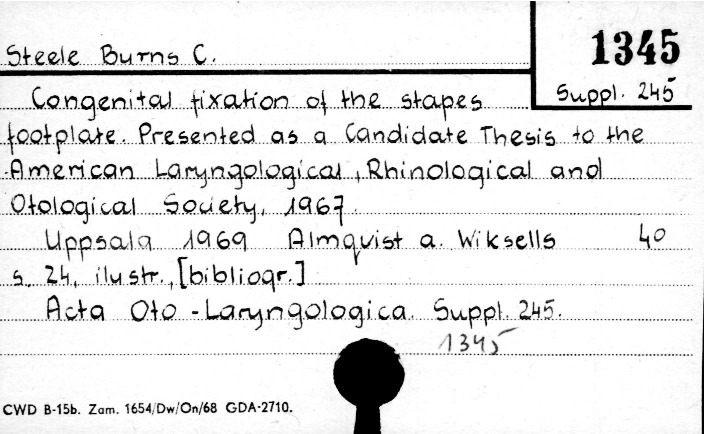 Steele Burns C.
1345
Suppl. 245
Congenital fixation of the stapes
footplate. Presented as a Candidate Thesis to the
American Laryngological, Rhinological and
Otological Society, 1967.
Uppsala 1969 Almqvist a. Wiksells 40
s. 24, ilustr., [bibliogr.]
Acta Oto-Laryngologica. Suppl. 245.
1345
CWD B-15b. Zam. 1654/Dw/On/68 GDA-2710.